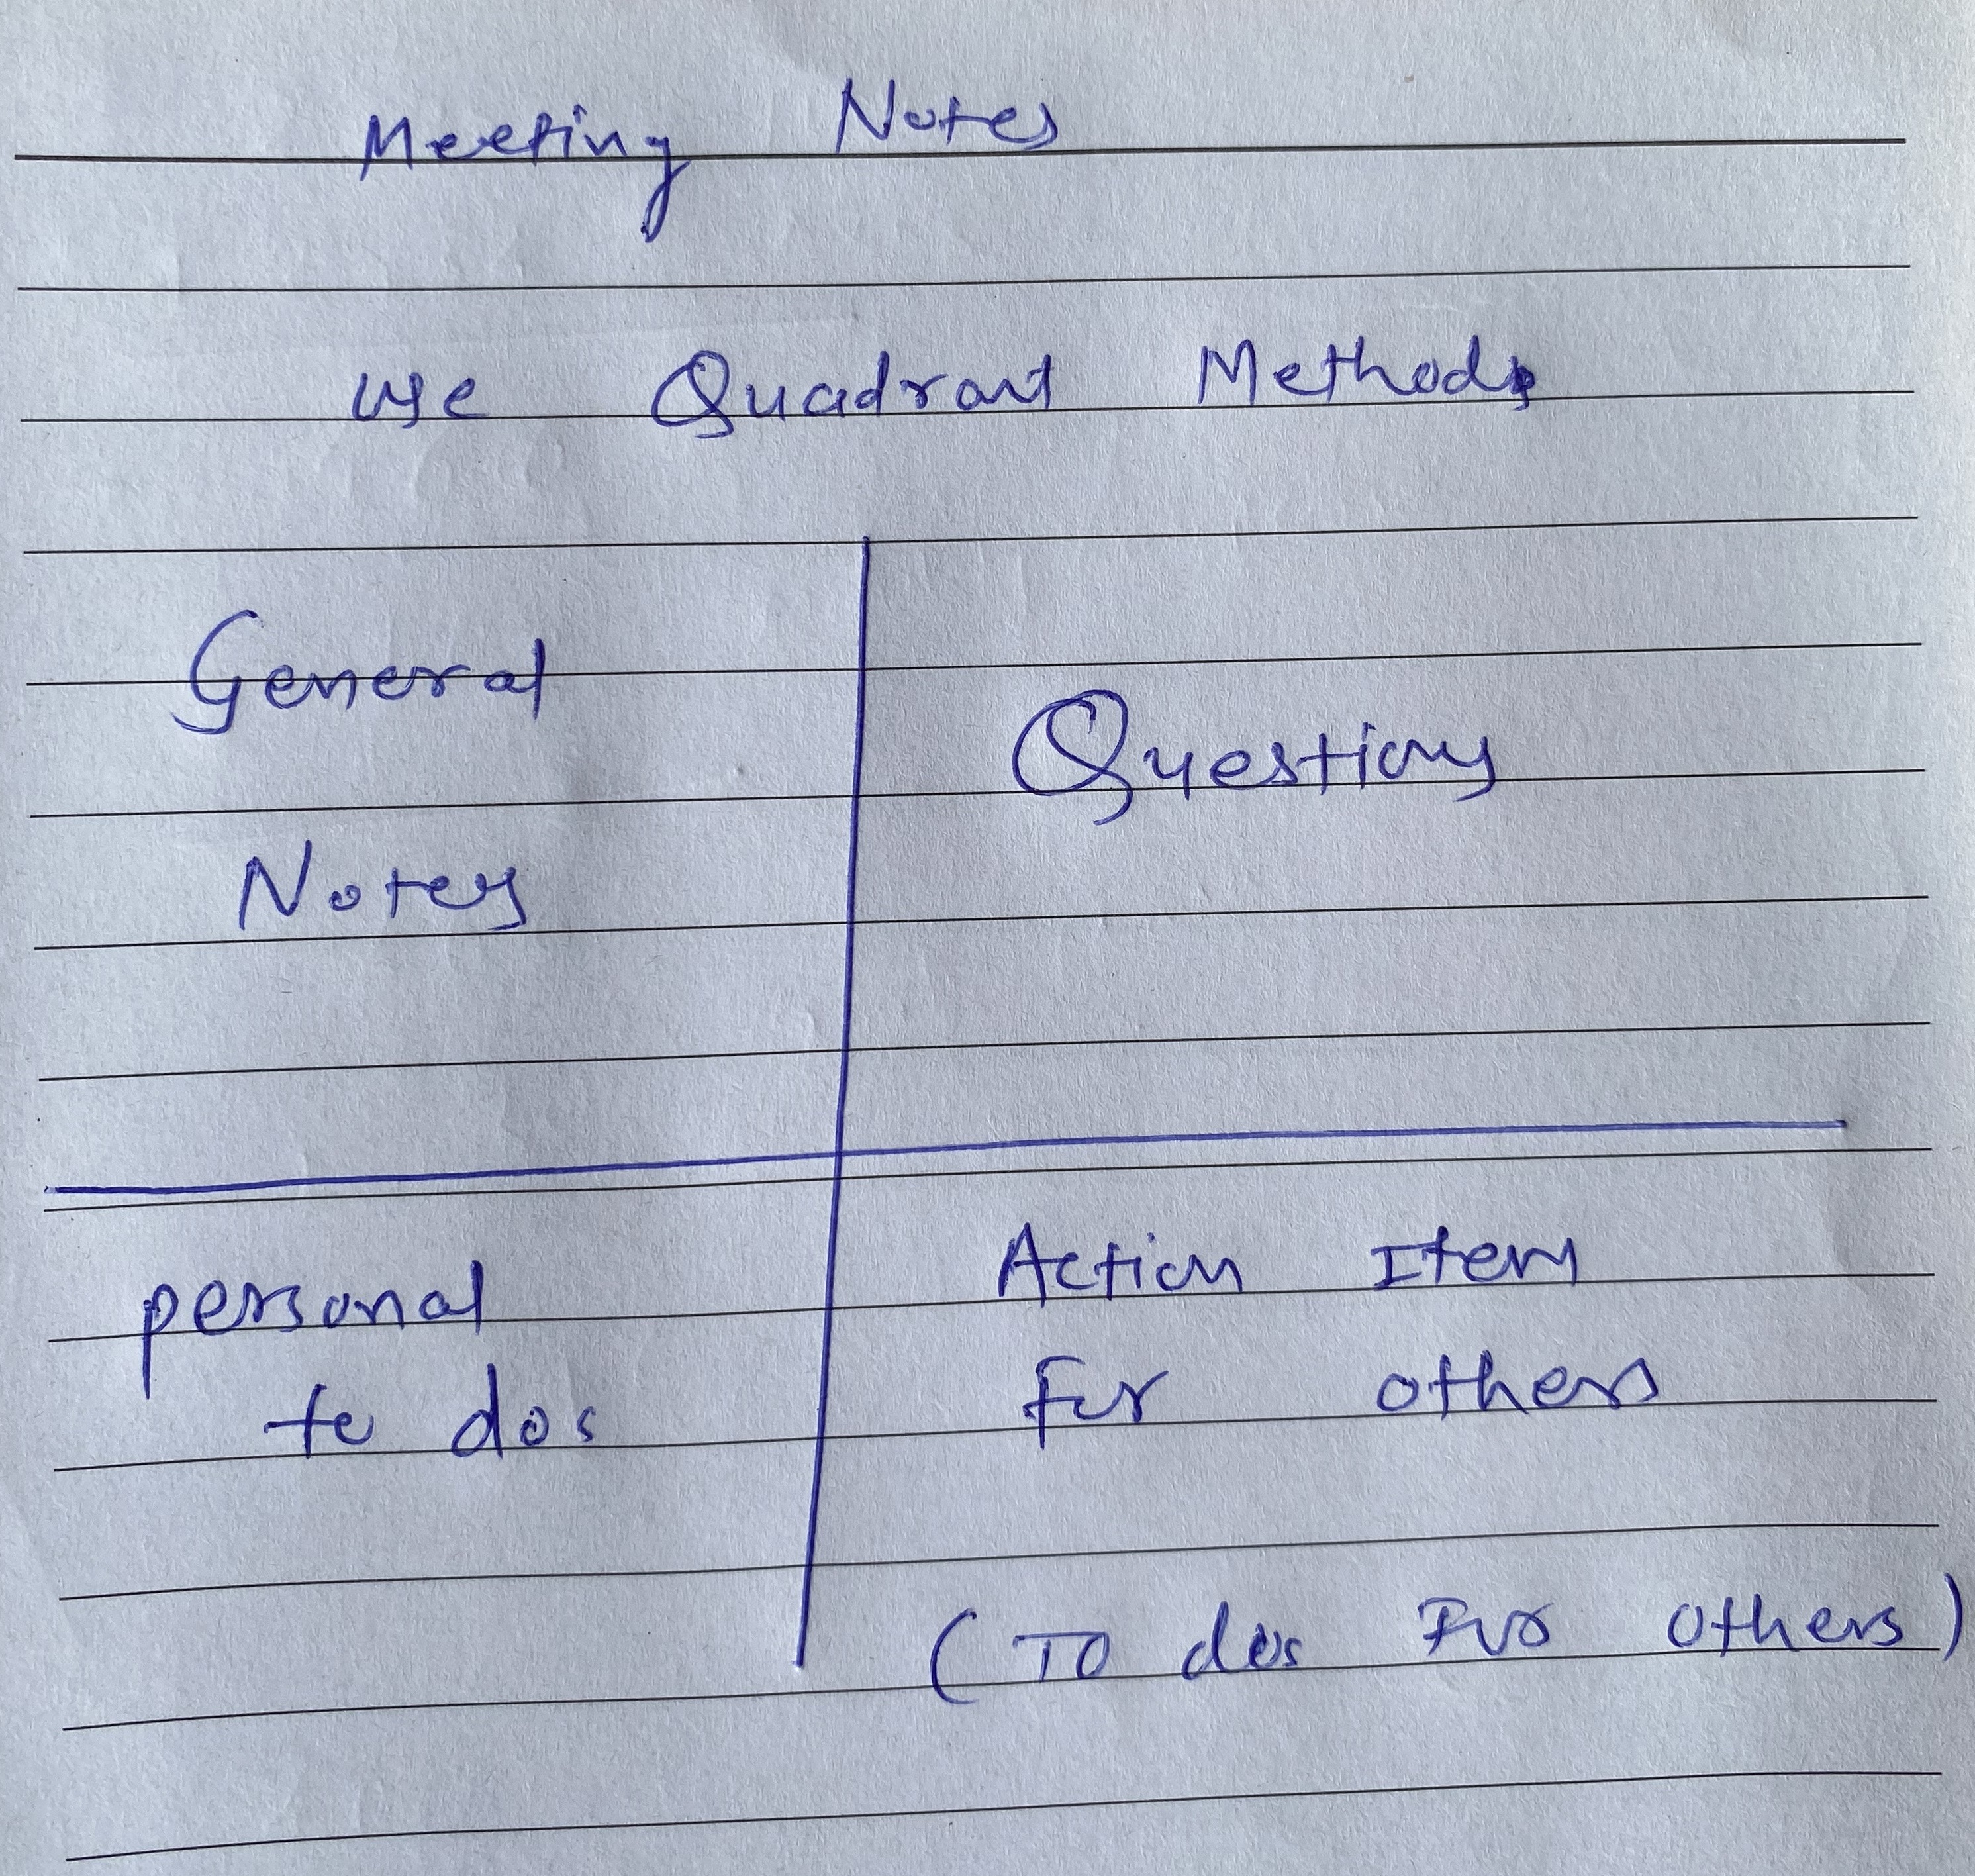 Meeting Notes
use Quadrant Method
General
Notes
Questions
personal
to dos
Action Items
For others
(To dos For others)